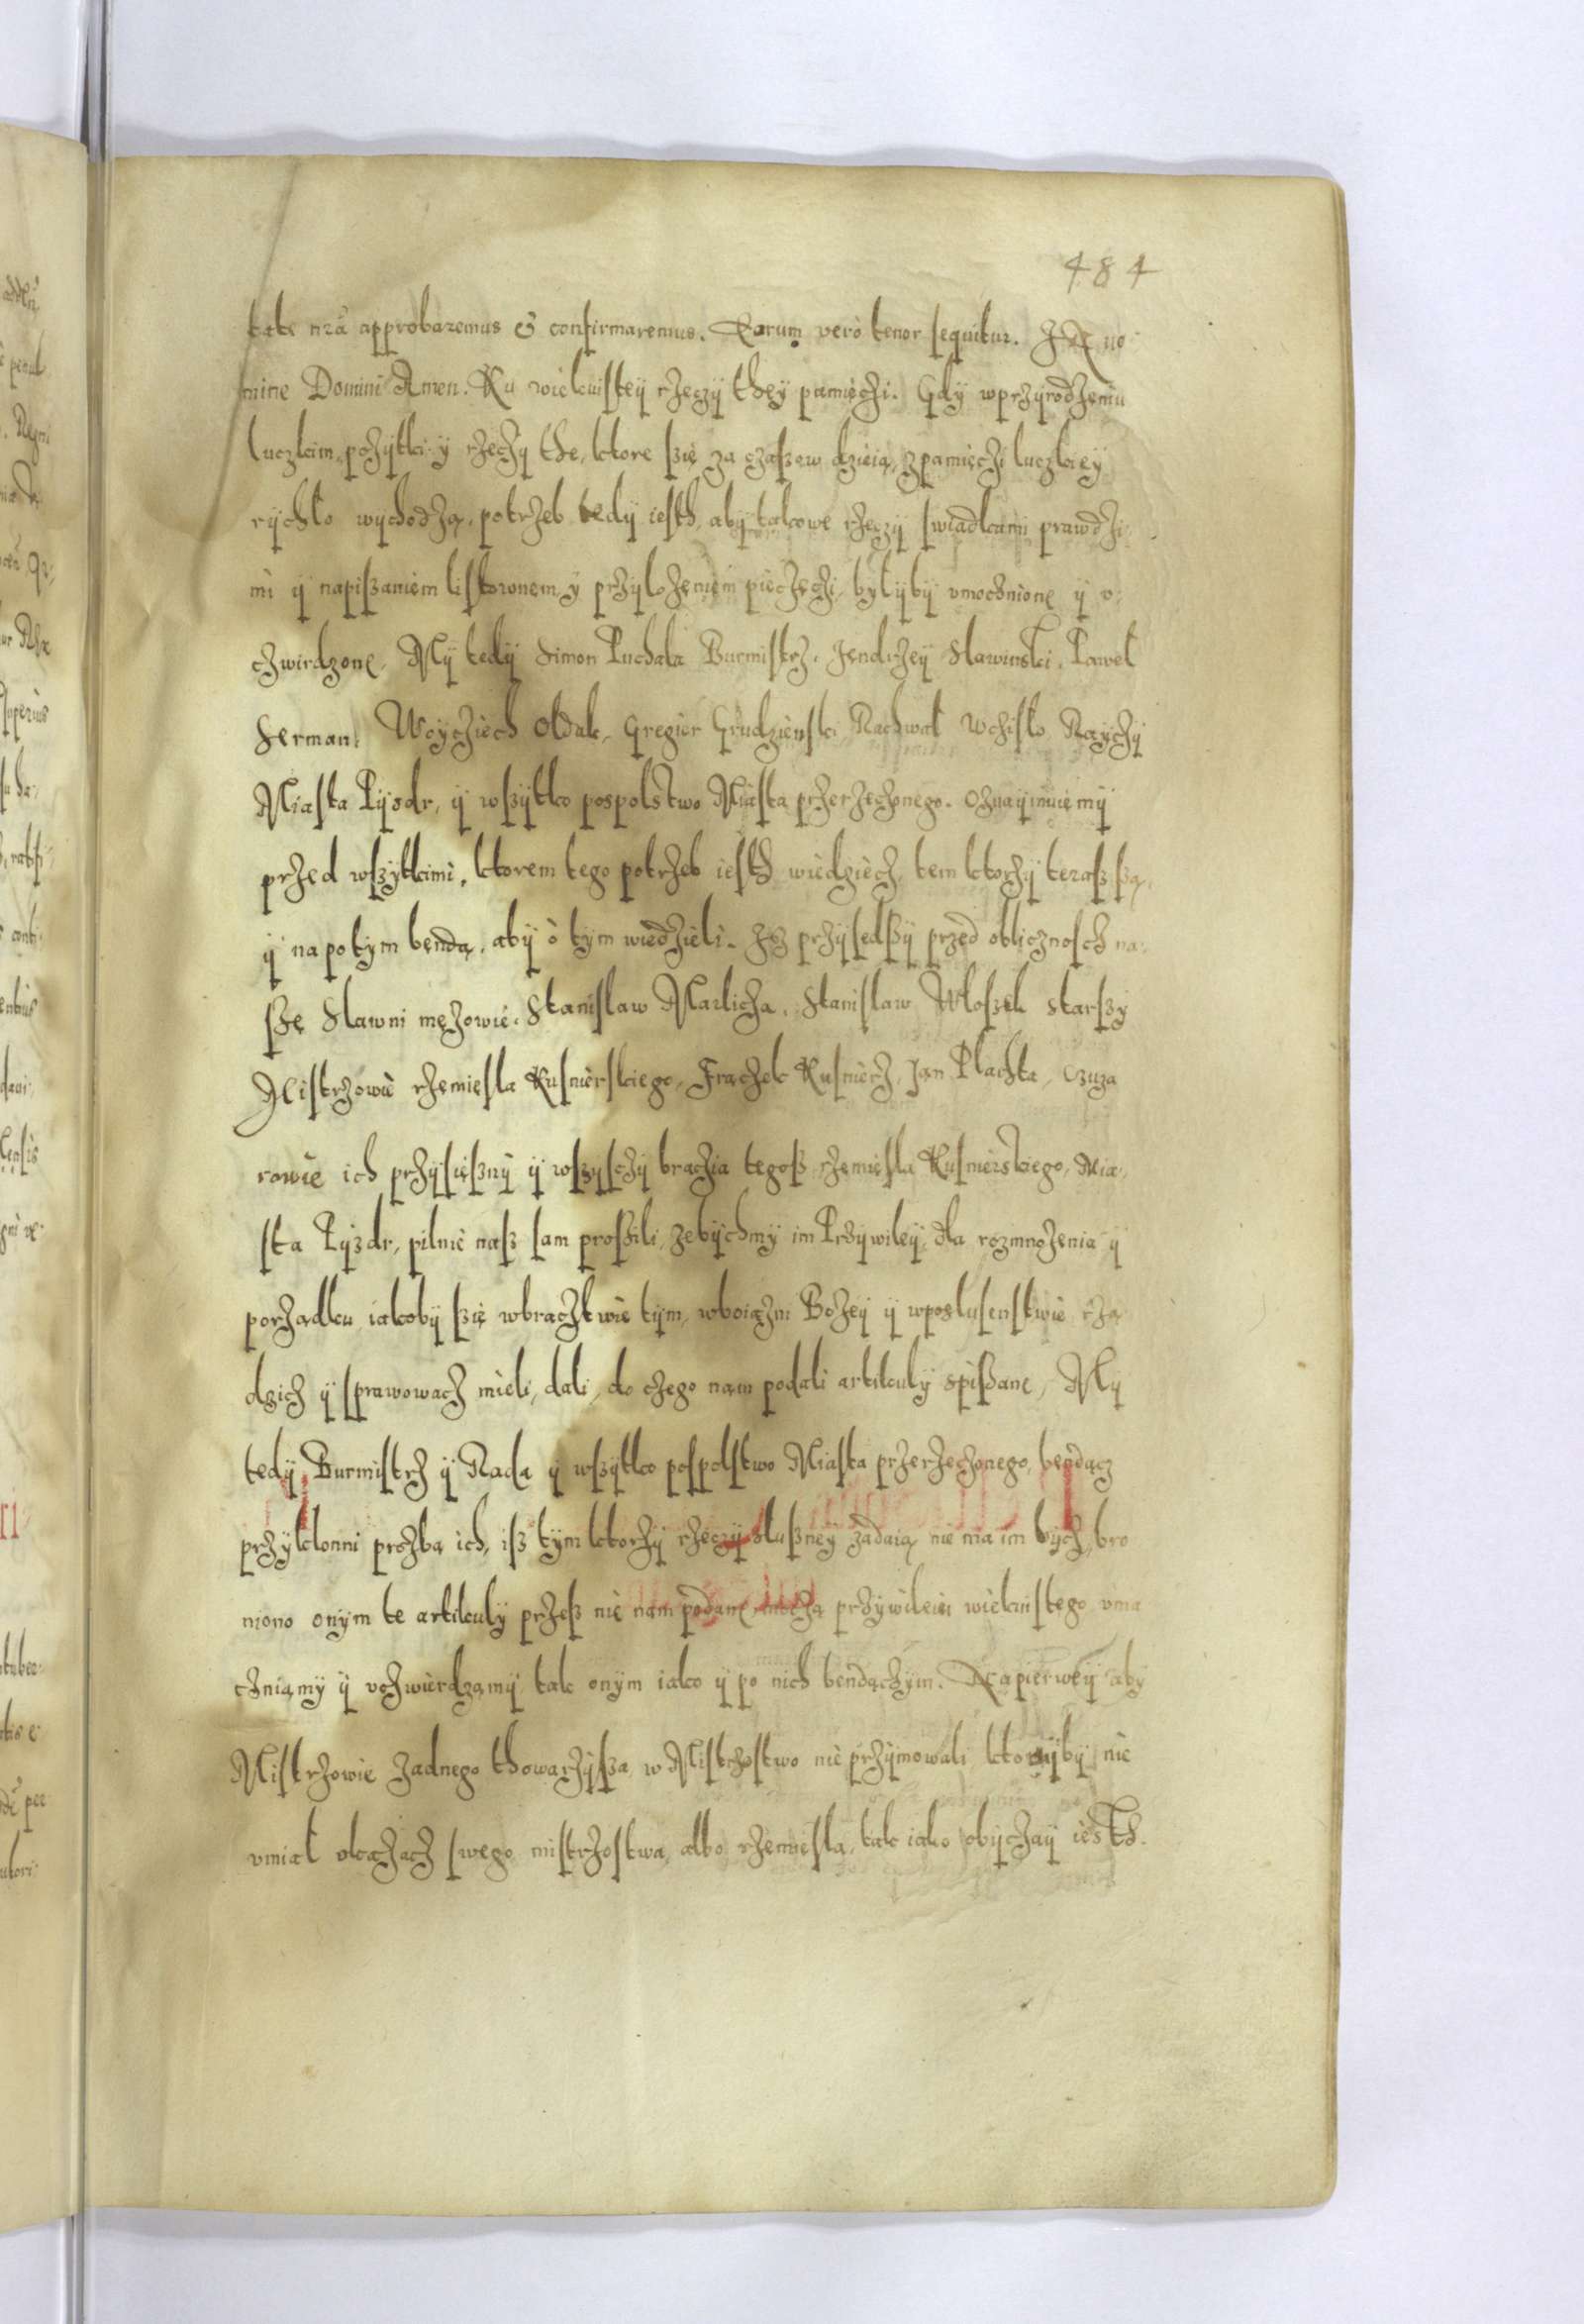 484
tate nrã approbaremus & confirmaremus. Earum verò tenor sequitur. IN no
mine Domini Amen. Ku wiekuistey rzeczy they pamięczi. Gdy wprzyrodzeniu
luczkim, pozytki y rzeczy the, ktore szię za czaszew dzieią, zpamięczi luczkiey
rychło wychodzą, potrzeb tedy iesth, aby takowe rzeczy swiadkami prawdzi
mi y napiszaniem listownem y przylozeniem pieczęczi, byłyby vmocznione y v
czwirdzone. My tedy Simon Puchala Burmistrz, Jendrzey Slawinski, Paweł
Herman, Woycziech Ołdak, Gregier Grudzienski, Rachwał Wchisło Rayczy
Miasta Pyzdr, y wszytko pospolstwo Miasta przerzeczonego. Oznaymuiemy
przed wszytkimi, ktorem tego potrzeb iesth wiedziecz, tem ktorzy terasz szą,
y napotym bendą, aby o tym wiedzieli. Jż przyszedszy przed obliczność na
szę Sławni mężowie, Stanisław Marlicza, Stanisław Włoszek starszy
Mistrzowie rzemięsla Kusnierskiego, Fraczek Kusnierz, Jan Plachta, Czuza
rowie ich przysięszny y wszysczy braczia tegosz rzemięsla Kusnierskiego, Mia
sta Pyzdr, pilnie nasz sam proszili, zebychmy im Przywiley, dla rozmnożenia y
porządku iakoby szię wbracztwie tym, wboiązni Bożey y wposlusenstwie rzą
dzicz y sprawowacz mieli, dali, do czego nam podali artikuly spiszane, My
tedy Burmistrz y Rada y wszytko pospolstwo Miasta przerzeczonego, bendącz
przyklonni proźbą ich, isz tym ktorzy rzeczy sluszney żądaią nie ma im bycz bro
niono onym te artikuly przesz nie nam podane, moczą przywileiu wiekuistego vma
czniamy y vczwierdzamy tak onym iako y po nich bendączym. Napierwey aby
Mistrzowie żadnego thowarzysza w Mistrzostwo nie przymowali ktoryby nie
vmiał vkazacz swego mistrzostwa, albo rzemięsla, tak iako obyczay iesth.